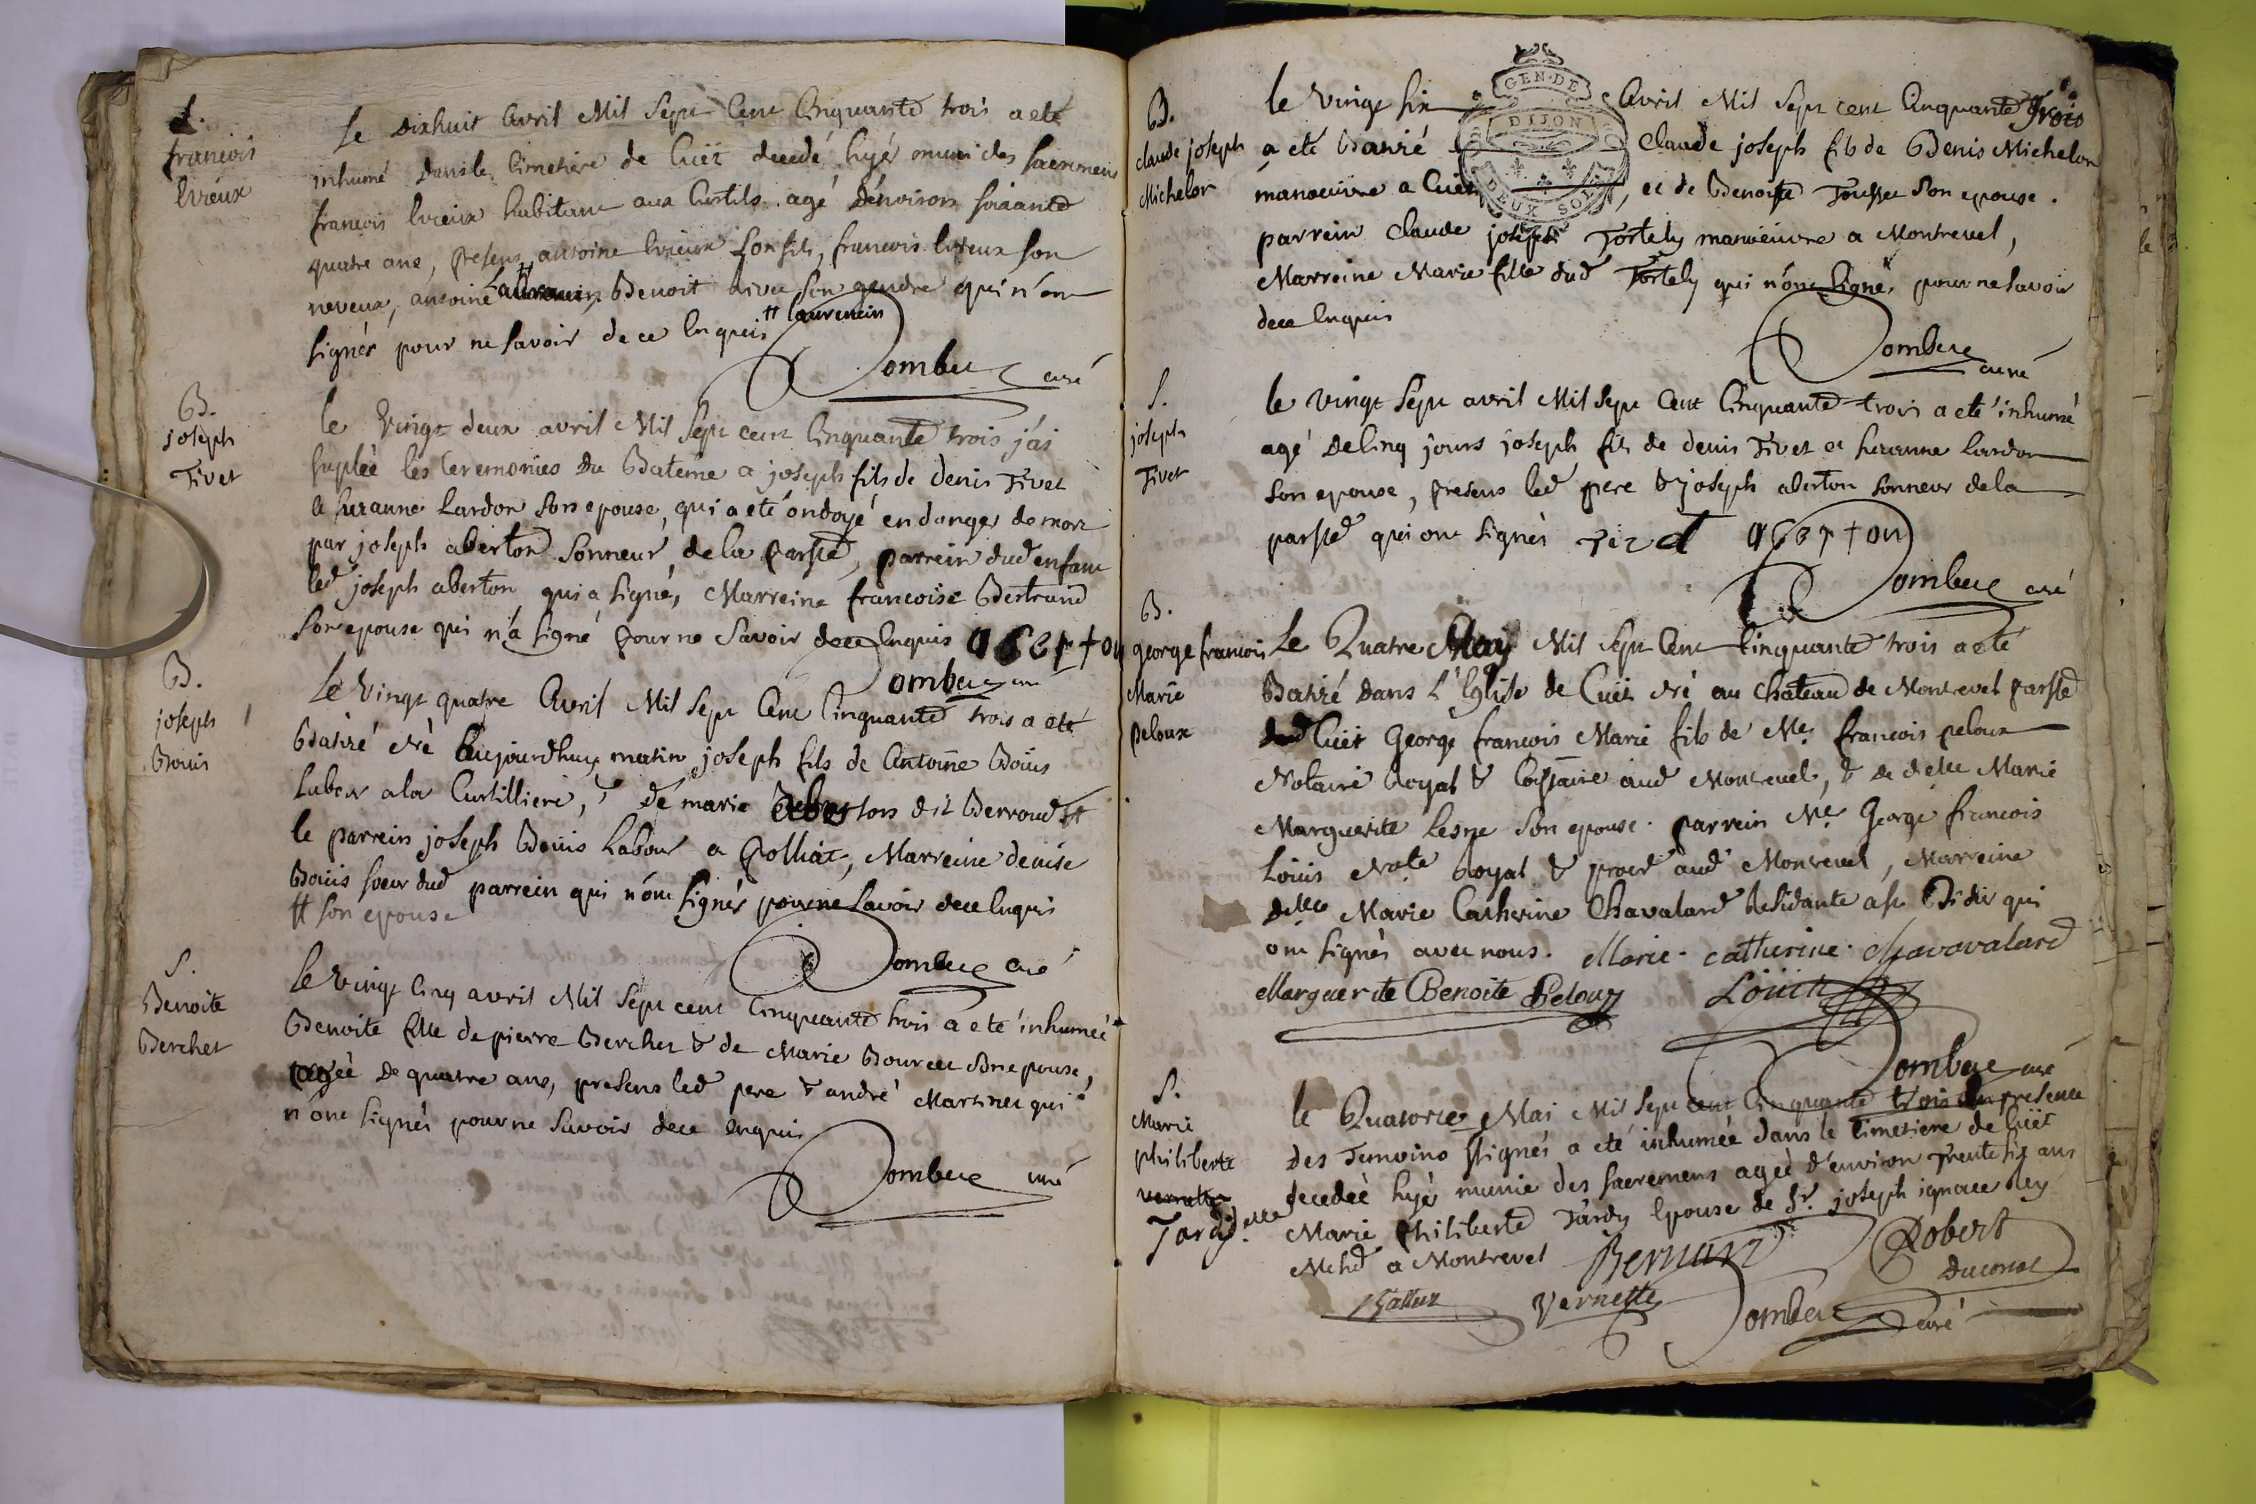 S.
francois
Evieux
Le Dixhuit Avril Mil Sept Cent Cinquante trois a eté
inhumé dans le Cimetiere de Cuët decedé hyé muni des sacremens
francois Evieux habitant aux Curtils agé denviron soixante
quatre ans, presens antoine Evieux son fils, francois Evieux son
neveux, antoine Benoit son gendre qui n'ont
signés pour ne savoir de ce Enquis # Laurencin
Dombeue curé
B.
joseph
Tivet
le Vingt deux avril Mil Sept cent Cinquante trois j'ai
suplée les Ceremonies du Bateme a joseph fils de denis Tivet
& suzanne Lardon son epouse, qui a eté ondoyé en danger de mort
par joseph aberton Sonneur de la parsse, parrein dud enfant
led joseph aberton qui a signé, Marreine francoise Bertrand
son epouse qui n'a signé pour ne savoir dece Enquis aberton
Dombeue curé
B.
joseph
Boüis
Le Vingt quatre Avril Mil Sept Cent Cinquante trois a eté
Batizé né aujourdhuy matin joseph fils de Antoine Boüis
Labour a la Curtilliere, & de marie dit Berroud #
le parrein joseph Boüis Labour a Polliat, Marreine denise
Boüis soeur dud parrein qui n'ont signés pour ne savoir dece Enquis
# son epouse
Dombeue curé
S.
Benoite
Berchet
le Vingt Cinq avril Mil Sept cent Cinquante trois a eté inhumeé
Benoite fille de pierre Berchet & de Marie son epouse,
ageé de quatre ans, presens led pere & andré Martinet qui
n'ont signés pour ne savoir dece enquis
Dombeue curé
B.
Claude joseph
Michelon
GEN. DE
DIJON
DEUX SOLS
le Vingt six Avril Mil Sept cent Cinquante Trois
a eté Batizé Claude joseph fils de Denis Michelon
manoeuvre a Cuët, et de Benoite Tousset son epouse.
parrein Claude joseph Tortely manoeuvre a Montrevel,
Marreine Marie fille dud Tortely qui n'ont signés pour ne savoir
dece Enquis
Dombeue curé
S.
joseph
Tivet
le Vingt Sept avril Mil Sept Cent Cinquante trois a eté inhumé
agé de Cinq jours joseph fils de denis Tivet et suzanne Lardon
son epouse, presens led pere & joseph aberton sonneur de la
parsse qui ont signés aberton
Dombeue curé
B.
george francois
Marie
peloux
Le Quatre May Mil Sept Cent Cinquante trois a eté
Batizé dans L'Eglise de Cuët né au chateau de Montrevel parsse
dud Cuët George francois Marie fils de Me. francois peloux
Notaire Royal & aud Montrevel, & de delle Marie
Marguerite Lesne son epouse. parrein Me. George francois
Loüis Note Royal & procr aud Montrevel, Marreine
delle Marie Catherine Chavalard Residante a st Didier qui
ont signés avec nous. Marie. catherine. chavavalard
Marguerite Benoite Peloux Loüis
Dombeue curé
S.
Marie
philiberte
Tardy
le Quatorze Mai Mil Sept cent Cinquante trois en presence
des Temoins ssignés a eté inhumée dans le Cimetiere de Cuët
decedeé hyé munie des sacremens ageé d'environ Trente six ans
Marie Philiberte Tardy Epouse de Sr. joseph ignace Rey
Mchd a Montrevel Bernard Robert
Vernette Dombeue curé